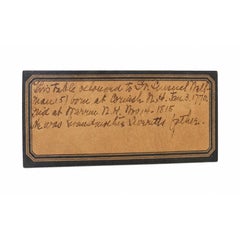 This table belonged to Dr. Lemuel Well-
man. Born at Cornish N.H. Jan. 3. 1770.
Died at Warren N.H. Nov. 1815
He was Grandmother Everetts father.